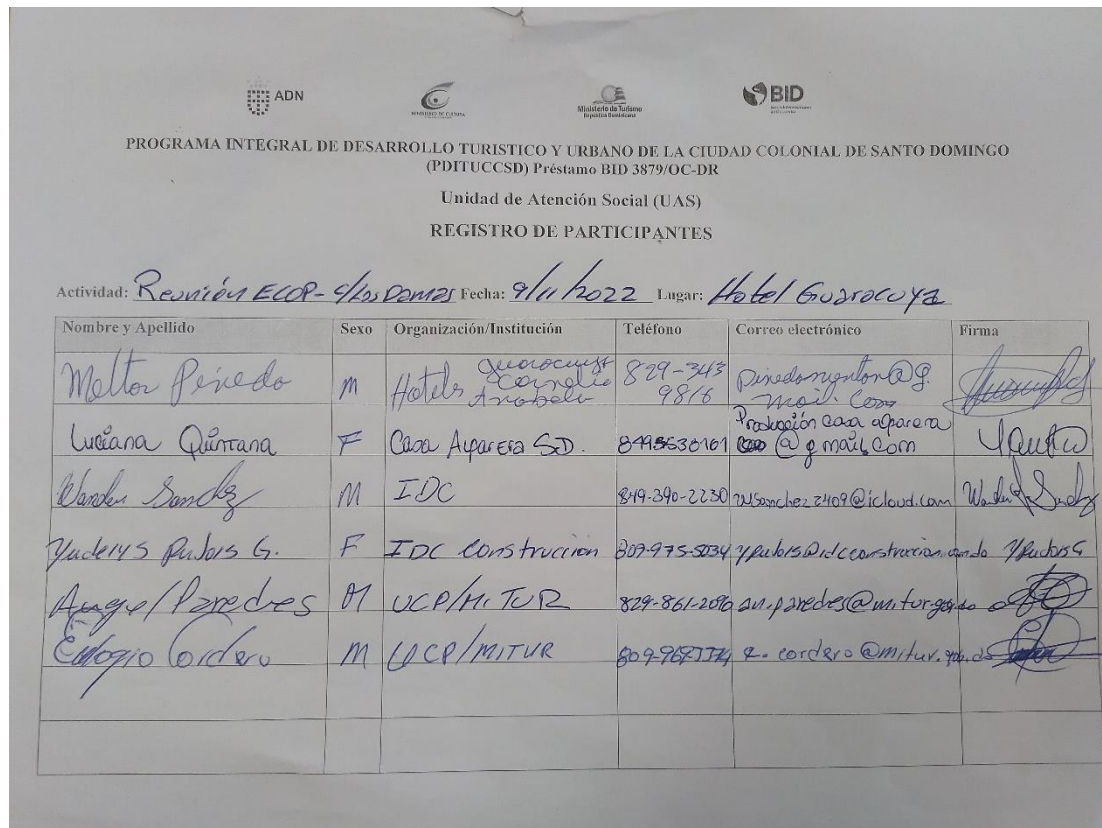 ADN
MINISTERIO DE CULTURA
Ministerio de Turismo
República Dominicana
BID
PROGRAMA INTEGRAL DE DESARROLLO TURISTICO Y URBANO DE LA CIUDAD COLONIAL DE SANTO DOMINGO
(PDITUCCSD) Préstamo BID 3879/OC-DR
Unidad de Atención Social (UAS)
REGISTRO DE PARTICIPANTES
Actividad: Reunión ECOP- C/Las Damas Fecha: 9/11/2022 Lugar: Hotel Guarocuya
Nombre y Apellido Sexo Organización/Institución Teléfono Correo electrónico Firma
Melton Pinedo M Hotels Guarocuya Cornelio Anabela 829-343 9816
Luciana Quintana F Casa Alfarera SD. Producción casa alfarera @gmail.com
M IDC 849-390-2230 wsanchez2409@icloud.com
F IDC Construccion 809-975-5034
Angel Paredes M UCP/MITUR 829-861-2096 an.paredes@mitur.gob.do
Eulogio Cordero M UCP/MITUR e.cordero@mitur.gob.do